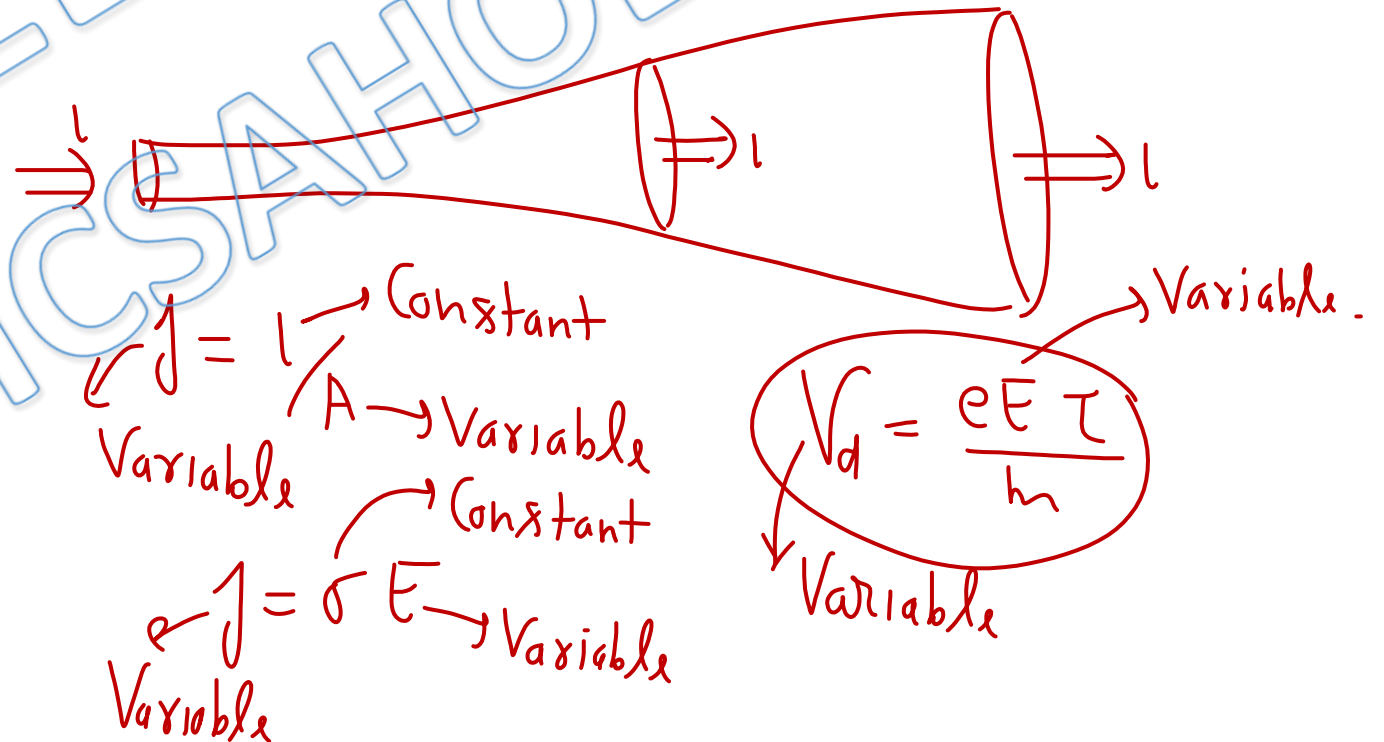 I
I
I
CSAHO
J = I / A
Constant
Variable
Variable
J = σ E
Constant
Variable
Variable
Vd = eEτ / m
Variable.
Variable